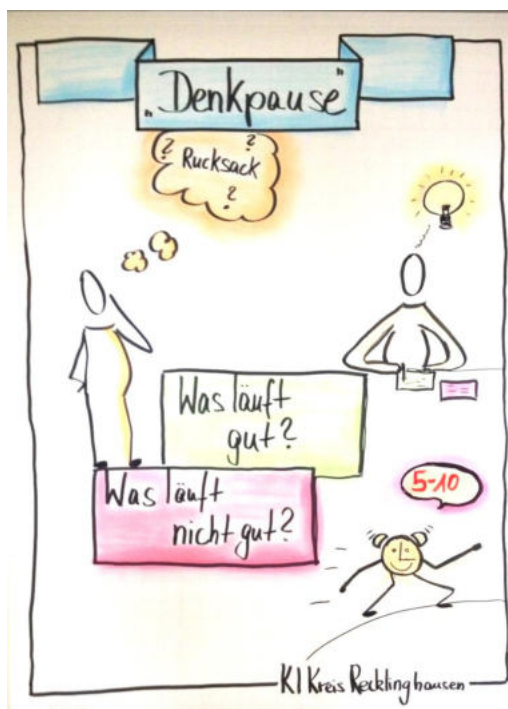 „Denkpause"
? ?
Rucksack
?
Was läuft
gut?
Was läuft
nicht gut?
5-10
KI Kreis Recklinghausen